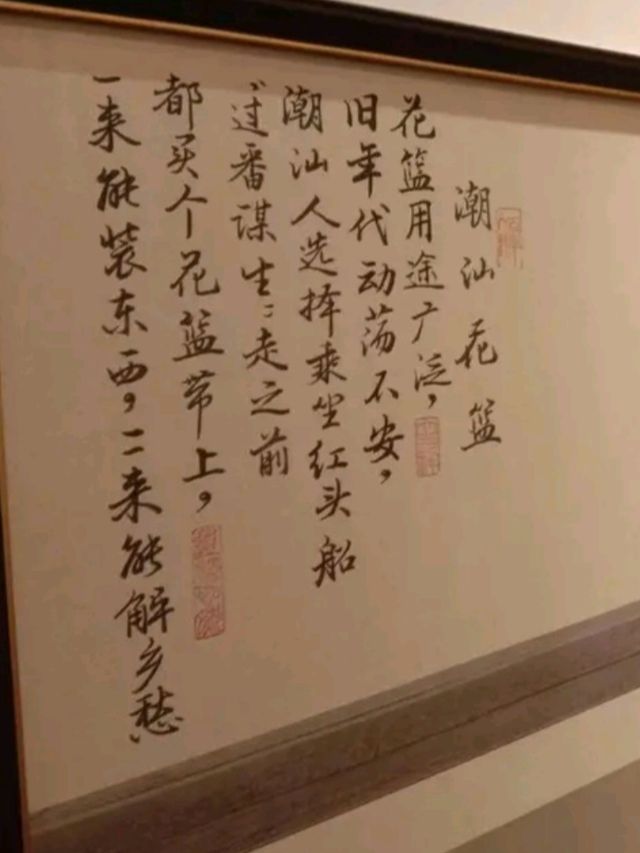 潮汕花篮
花篮用途广泛，
旧年代动荡不安，
潮汕人选择乘坐红头船
“过番谋生：走之前
都买个花篮带上，
一来能装东西，二来能解乡愁